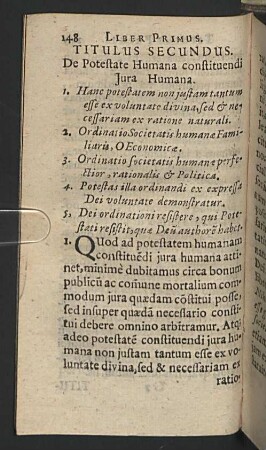 148 LIBER PRIMUS.
TITULUS SECUNDUS.
De Potestate Humana constituendi
Jura Humana.
1. Hanc potestatem non justam tantum
esse ex voluntate divina, sed & ne-
cessariam ex ratione naturali.
2. Ordinatio Societatis humanæ Fami-
liaris, O Economicæ.
3. Ordinatio societatis humanæ perfe-
ctior, rationalis & Politica.
4. Potestas illa ordinandi ex expressa
Dei voluntate demonstratur.
5. Dei ordinationi resistere, qui Pote-
stati resistit, quæ Deũ authorẽ habet.
1. Quod ad potestatem humanam
constituẽdi jura humana atti-
net, minimè dubitamus circa bonum
publicũ ac com̃une mortalium com-
modum jura quædam cõstitui posse,
sed insuper quædã necessario consti-
tui debere omnino arbitramur. Atq;
adeo potestatẽ constituendi jura hu-
mana non justam tantum esse ex vo-
luntate divina, sed & necessariam ex
ratio-